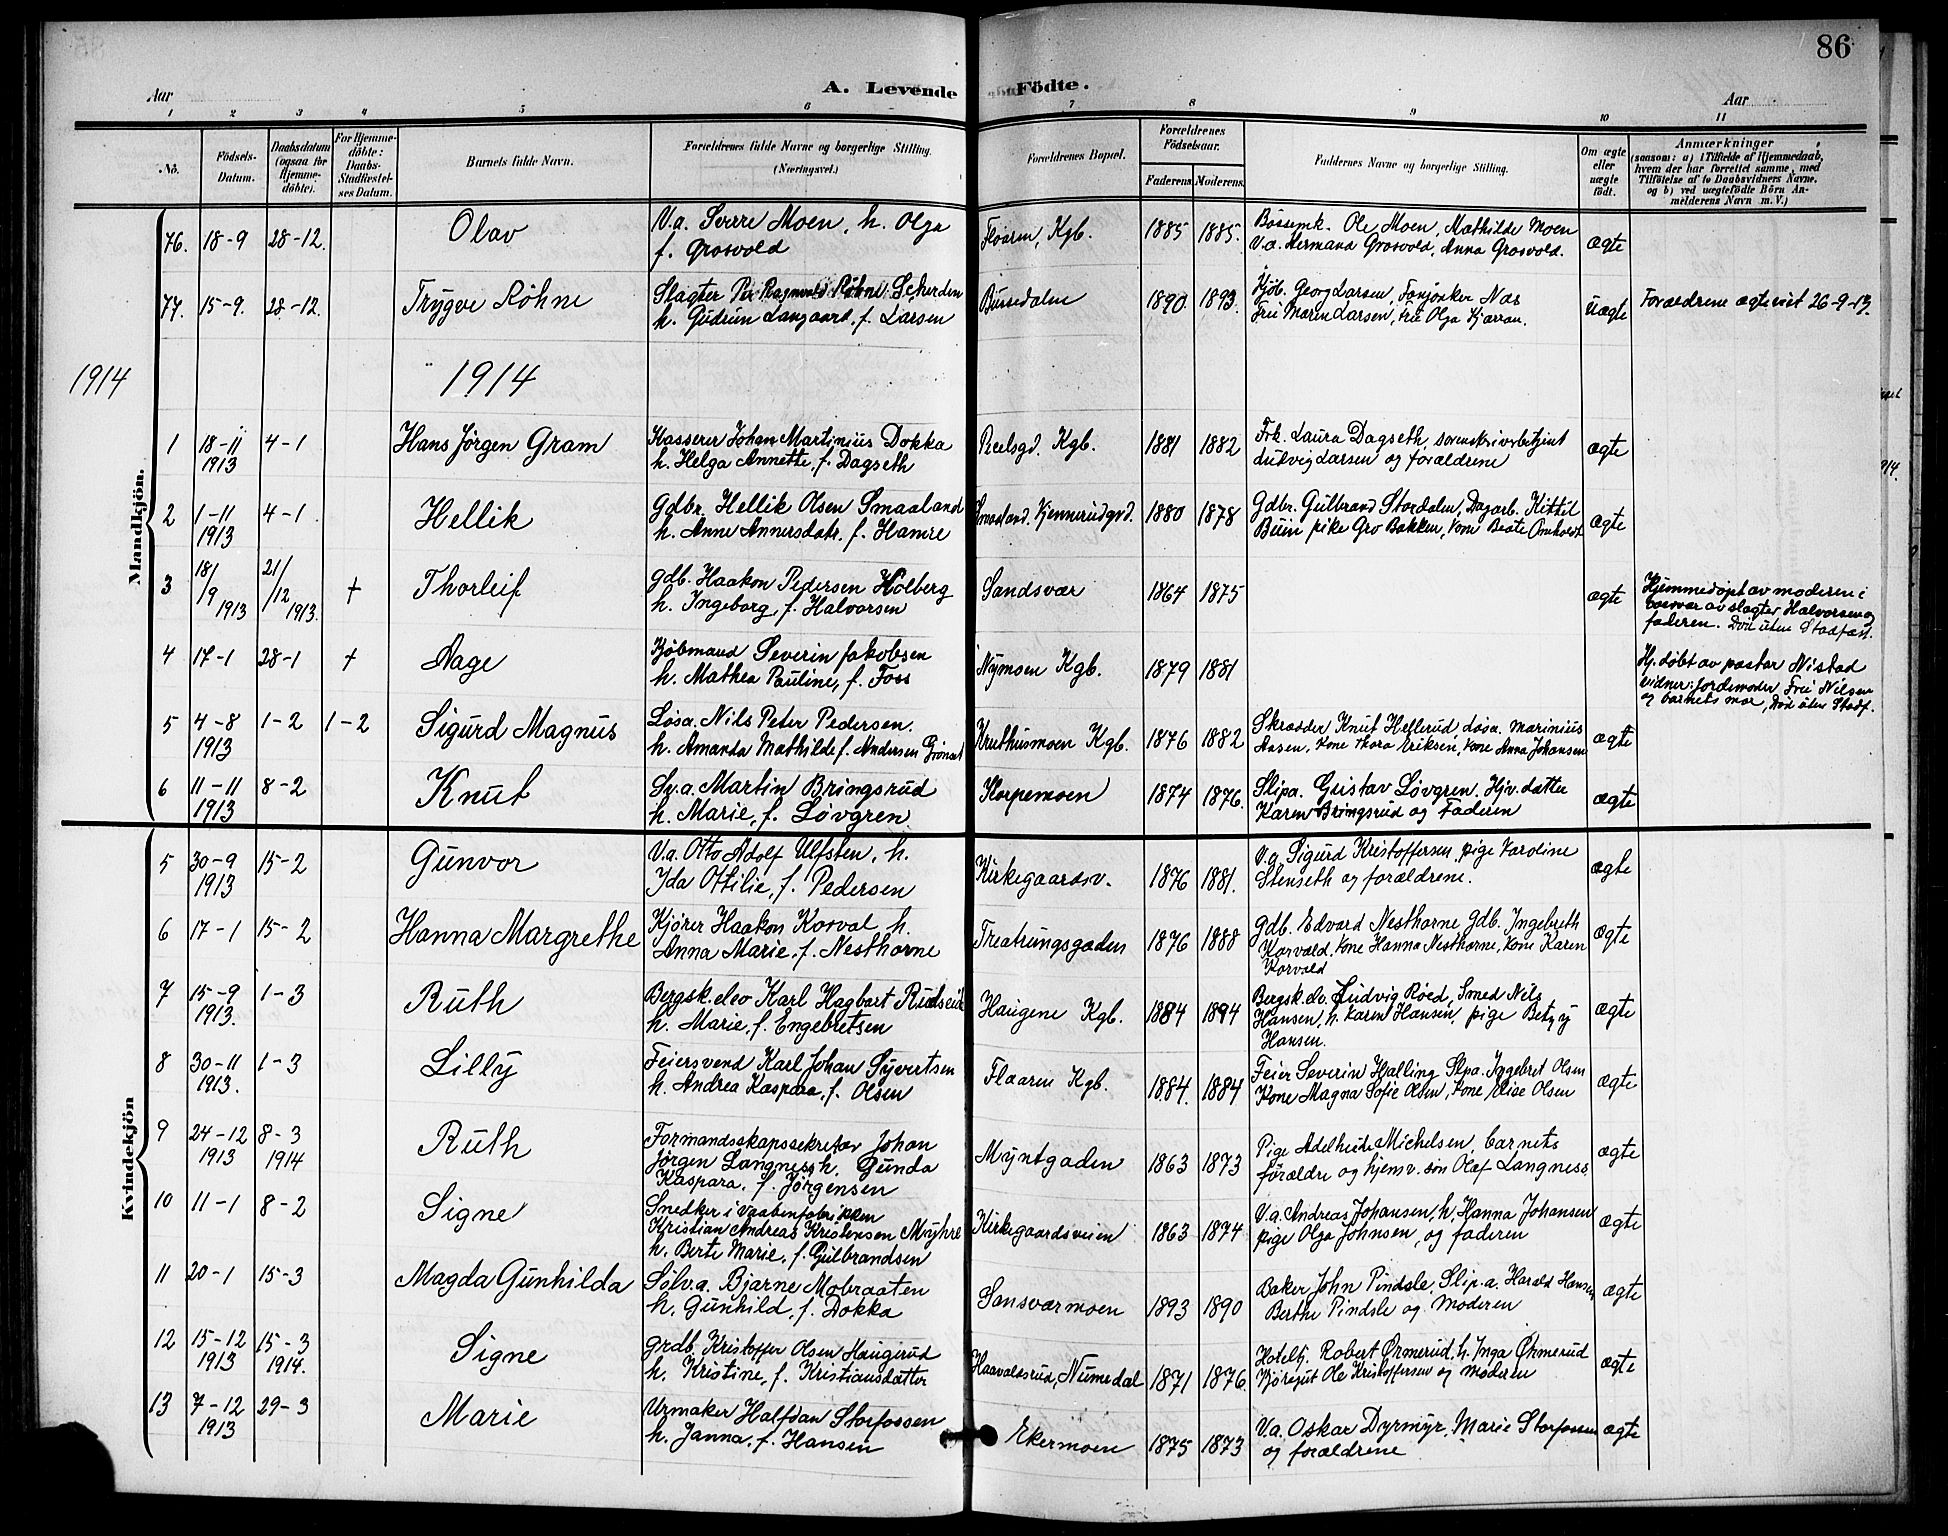 86
A. Levende Födte.
Aar
Aar
1 2 3 4 5 6 7 8 9 10 11
No.
Födsels-Datum.
Daabsdatum (ogsaa for Hjemme-döbte).
For Hjemme-döbte: Daabs-Stadfæstel-ses Datum.
Barnets fulde Navn.
Forældrenes fulde Navne og borgerlige Stilling. (Næringsvei.)
Forældrenes Bopæl.
Forældrenes Födselsaar.
Faderens. Moderens.
Faddernes Navne og borgerlige Stilling.
Om ægte eller uægte födt.
Anmærkninger
(saasom: a) i Tilfælde af Hjemmedaab,
hvem der har forrettet samme, med
Tilföielse af to Daabsvidners Navne.
og b) ved uegtefödte Börn An-
melderens Navn m. V.)
Mandkjön.
76. 18-9 28-12. Olav V.a. Sverre Moen, h. Olga Floaren, Kgb. 1885 1885. Bøssemk. Ole Moen, Mathilde Moen ægte
f. Grosvold V.a. Hermand Grosvold, Anna Grosvold.
77. 15-9. 28-12. Trygve Röhne Slagter Per Ragnvald Röhne Scherden Bussedalen 1890 1893. Kjöb. Georg Larsen, Fanjunker Næs uægte Forældrene ægteviet 26-9-13.
h. Gudrun Langaard, f. Larsen Fru Maren Larsen, fru Olga Kjærran.
1914 1914
1 18-11 1913 4-1 Hans Jørgen Gram Kasserer Johan Martinius Dokka Peelsgd. Kgb. 1881 1882 Frk. Laura Dagseth, sorenskriverbetjent ægte
h. Helga Annette, f. Dagseth Ludvig Larsen og forældrene
2 1-11 1913 4-1. Hellik Gdbr. Hellik Olsen Smaaland Smaaland. Kjennerudgrd. 1880 1878 Gdbr. Gulbrand Stordalen, Dagarb. Kittil ægte
h. Anne Annersdatr. f. Hamre Buin pike Gro Bakken, kone Beate Omholdt
3 18/9 1913 21/12 1913. + Thorleif Gdb. Haakon Pedersen Holberg Sandsvær 1864 1875 ægte Hjemmedøpt av moderen i
h. Ingeborg, f. Halvorsen nærvær av slagter Halvorsen og
faderen. Död uten Stadfæst.
4 17-1 28-1 + Aage Kjöbmand Severin Jakobsen Nymoen Kgb. 1879 1881 Hj. døbt av pastor Nistad
h. Mathea Pauline, f. Foss vidner: Jordemoder Fru Nilsen
og barnets mor, Död uten Stadf.
5 4-8 1913 1-2 1-2 Sigurd Magnus Løsa. Nils Peter Pedersen. Kruthusmoen Kgb. 1876 1882 Skrædder Knut Hellerud, Løsa. Marinius ægte
h. Amanda Mathilde f. Andersen Aasen, kone Thora Eriksen, kone Anna Johansen
6 11-11 1913 8-2 Knut Sv.a. Martin Bringsrud Skorpemoen 1874 1876. Slipa. Gustav Løvgren. Hjv. datter ægte
h. Marie, f. Løvgren Karen Bringsrud og Faderen
Kvindekjön
5 30-9 1913 15-2 Gunvor V.a. Otto Adolf Ulfsten, h. Kirkegaardsv. 1876 1881. V.a. Sigurd Kristoffersen, pige Karoline ægte
Ida Ottilie, f. Pedersen Stenseth og forældrene.
6 17-1 15-2 Hanna Margrethe Kjører Haakon Korval h. Treatrungsgaden 1876 1888 Gdb. Edvard Nesthorne gdb. Ingebreth ægte
Anna Marie, f. Nesthorne Korvald, kone Hanna Nesthorne, kone Karen
Korvald
7 15-9 1913. 1-3 Ruth Bergsk. elev Karl Hagbart Rudseie Haugene Kgb. 1884 1894 Bergsk. elv. Ludvig Røed, Smed Nils ægte
h. Marie, f. Engebretsen Hansen, h. Karen Hansen, pige Betzy
Hansen.
8 30-11 1913. 1-3 Lilly Feiersvend Karl Johan Syvertsen Flaaren Kgb. 1884. 1884 Feier Severin Halling Slpa. Ingebret Olsen ægte
h. Andrea Kaspara, f. Olsen Kone Magna Sofie Olsen, kone Elise Olsen
9 24-12 1913 8-3 1914 Ruth Formandsskapssekretær Johan Myntgaden 1863 1873 Pige Adelheide Michelsen, barnets ægte
Jørgen Langness h. Gunda forældre og hjemv. søn Olaf Langness
Kaspara, f. Jørgensen
10 11-1 8-2 Signe Snedker i Vaabenfabrikken Kirkegaardsveien 1863 1874 V.a. Andreas Johansen, h. Hanna Johansen ægte
Kristian Andreas Kristensen Myhre pige Olga Johnsen, og faderen
h. Berte Marie, f. Gulbrandsen
11 20-1 15-3 Magda Gunhilda Sølva. Bjarne Mobraaten Sansværmoen 1893 1890 Baker John Pindsle, Slip.a. Harald Hansen ægte
h. Gunhild, f. Dokka Berthe Pindsle og Moderen
12 15-12 1913 15-3 1914. Signe Grdb. Kristoffer Olsen Haugerud Haavalsrud, Numedal 1871 1876. Hotelbj. Robert Ørmerud, h. Inga Øhmerud ægte
h. Kristine, f. Kristiansdatter Kjøregut Ole Kristoffersen og moderen
13 7-12 1913 29-3 Marie Urmaker Halfdan Storfossen Ekermoen 1875 1873 V.a. Oskar Dyrmyr, Marie Storfossen ægte
h. Janna, f. Hansen og forældrene